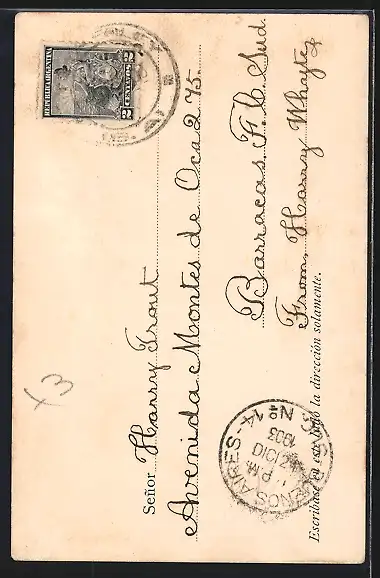 REPUBLICA ARGENTINA
2 CENTAVOS 2
Señor Harry Trout
Avenida Montes de Oca 275.
Barracas F. C. Sud.
From, Harry Whayte
BUENOS AIRES
Nº 14
1903
P.M.
Escríbase en este lado la dirección solamente.
x3